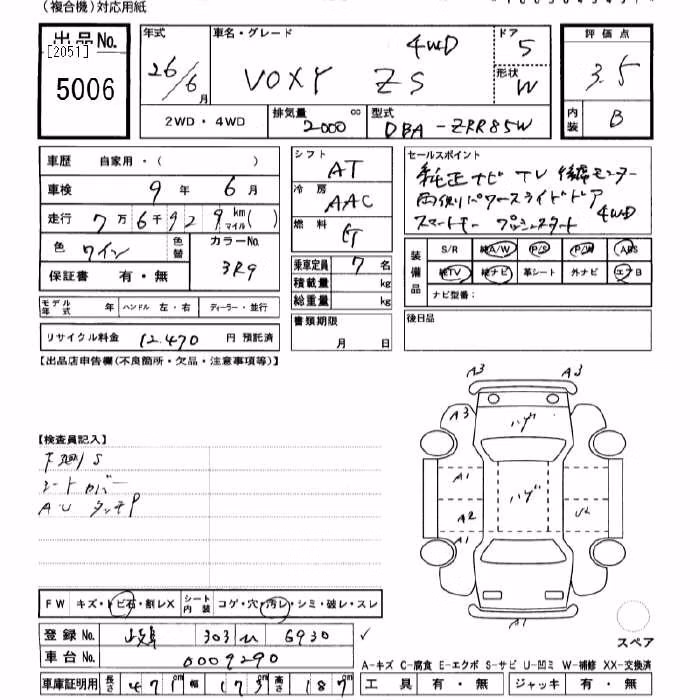 (複合機)対応用紙
出品No. [2051] 5006
年式 26/6月
車名・グレード VOXY ZS 4WD
ドア 5
形状 W
評価点 3.5
内装 B
2WD・4WD
排気量 2000 cc
型式 DBA-ZRR85W
車歴 自家用・( )
車検 9年 6月
走行 7万6千929 km マイル( )
色 ワイン 色替 カラーNo. 3R9
保証書 有・無
シフト AT
冷房 AAC
燃料
乗車定員 7名
積載量 kg
総重量 kg
書類期限 月 日
セールスポイント
純正ナビ TV 後席モニター
両側パワースライドドア
スマートキー プッシュスタート 4WD
装備品 S/R 純A/W P/S P/W ABS
純TV 純ナビ 革シート 外ナビ エアB
ナビ型番:
後日品
モデル年式 年 ハンドル 左・右 ディーラー・並行
リサイクル料金 12,470 円 預託済
【出品店申告欄(不良箇所・欠品・注意事項等)】
【検査員記入】
下廻りS
シートカバー
A・U タッチP
A3 A3
A3 ハゲ
A1 ハゲ
A2 U2
A1
A1
スペア
FW キズ・トビ石・割レX シート内装 コゲ・穴・汚レ・シミ・破レ・スレ
登録No. 岐阜 303 6930 ✓
車台No. 0009290
A-キズ C-腐食 E-エクボ S-サビ U-凹ミ W-補修 XX-交換済
車庫証明用 長さ 471cm 幅 173cm 高さ 187cm
工具 有・無 ジャッキ 有・無